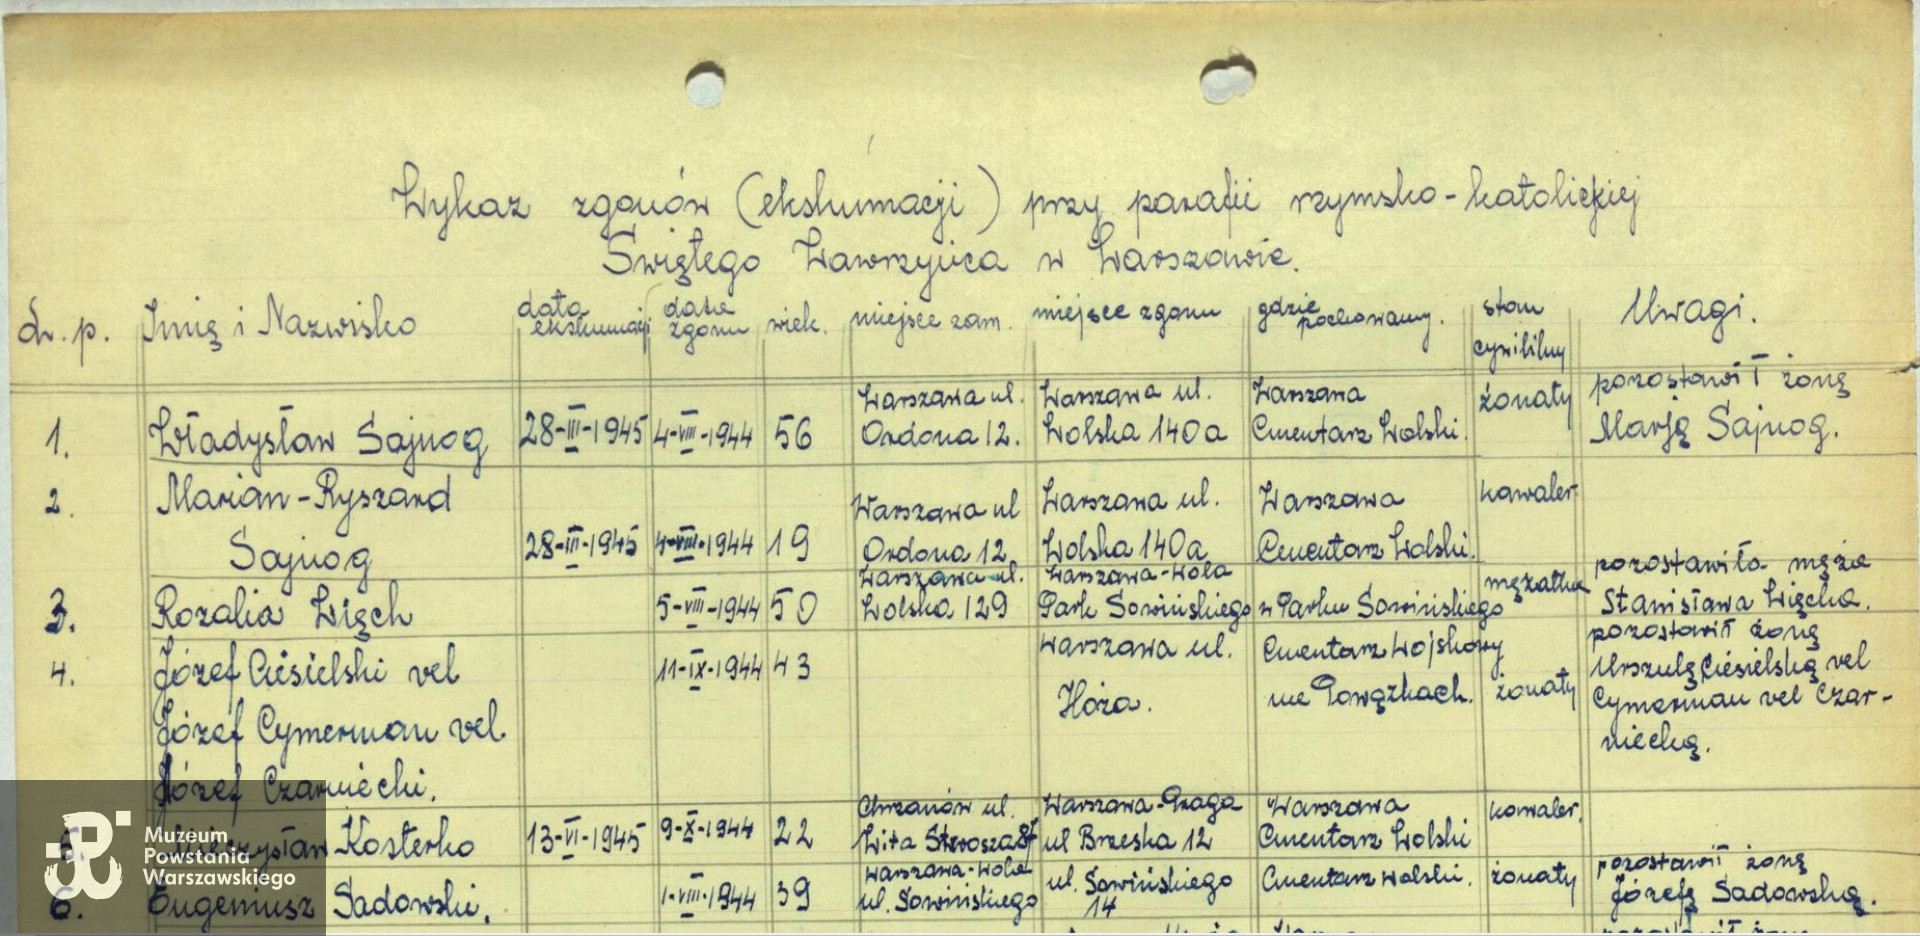 Wykaz zgonów (ekshumacji) przy parafii rzymsko-katolickiej
Świętego Wawrzyńca w Warszawie.
L. p. Imię i Nazwisko data ekshumacji data zgonu wiek. miejsce zam. miejsce zgonu gdzie pochowany. stan cywilny Uwagi.
1. Władysław Sajnog 28-III-1945 4-VIII-1944 56 Warszawa ul. Ordona 12. Warszawa ul. Wolska 140a Warszawa Cmentarz Wolski. żonaty pozostawił żonę Marję Sajnog.
2. Marian-Ryszard Sajnog 28-III-1945 4-VIII-1944 19 Warszawa ul Ordona 12 Warszawa ul. Wolska 140a Warszawa Cmentarz Wolski. kawaler
3. Rozalia Więch 5-VIII-1944 50 Warszawa ul. Wolska 129 Warszawa-Wola Park Sowińskiego w Parku Sowińskiego mężatka pozostawiła męża Stanisława Więcha.
4. Józef Ciesielski vel Józef Cymerman vel Józef Czarniecki. 11-IX-1944 43 Warszawa ul. Hoża. Cmentarz Wojskowy na Powązkach. żonaty pozostawił żonę Urszulę Ciesielską vel Cymerman vel Czar-niecką.
5. Mieczysław Kosterko 13-VI-1945 9-X-1944 22 Chrzanów ul. Wita Stwosza Warszawa-Praga ul Brzeska 12 Warszawa Cmentarz Wolski kawaler.
6. Eugeniusz Sadowski. 1-VIII-1944 39 Warszawa-Wola ul. Sowińskiego ul. Sowińskiego 14 Cmentarz Wolski. żonaty pozostawił żonę Józefę Sadowską.
Muzeum
Powstania
Warszawskiego